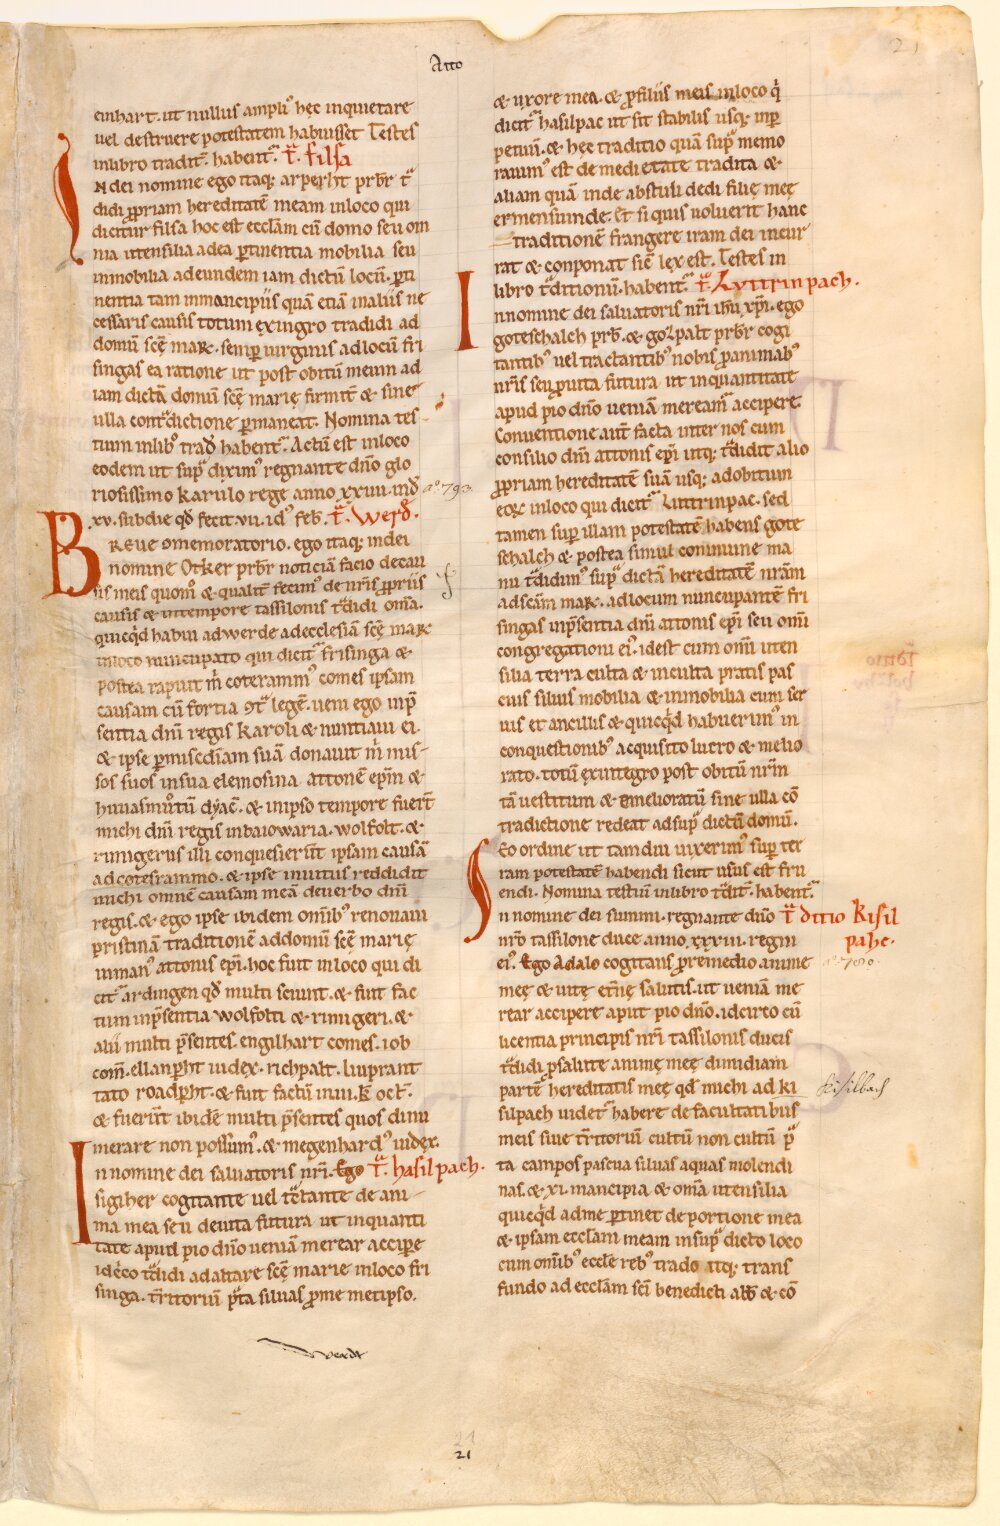 Atto
21
einhart. ut nullus ampli᷒ hęc inquietare
uel destruere potestatem habuisset Testes
inlibro tradit̄. habent᷑. T᷑. filsa
IN dei nomine ego itaq; arperht pr̄br t᷑
didi ꝓpriam hereditatē meam inloco qui
dicitur filsa hoc est ecclam cū domo seu om
nia utensilia adea ꝑtinentia mobilia seu
inmobilia adeundem iam dictū locū. ꝑti
nentia tam inmancipiis quā etiā inaliis ne
cessariis causis totum exingro tradidi ad
domū scę mar̄. semꝑ uirginis adlocū fri
singas ea ratione ut post obitū meum ad
iam dictā domū scę marię firmit̄ & sine
ulla cont᷑dictione ꝑmaneat. Nomina tes
tium inlib᷒ trad̄ habent᷑. Actū est inloco
eodem ut sup᷑ dixim᷒ regnante dn̄o glo
riosissimo karulo rege anno xxuii. ind̄
aᵒ 793.
xv. subdie qd̄ fecit. uii. id᷒ feb̄. T᷑. Werd̄.
BREVE ꝯmemoratorio. ego itaq; indei
nomine Otker pr̄br noticiā facio decau
sis meis quom̊ & qualit̄ fecim᷒ de nr̄is ꝓpriis
causis & intempore tassilonis t᷑didi om̄a.
quicqd̄ habui adwerde adecclesiā scę mar̄
inloco nuncupato qui dicit᷑ frisinga &
postea rapuit m̄ coteramm᷒ comes ipsam
causam cū fortia ꝯt᷑ legē. ueni ego inp̄
sentia dn̄i regis karoli & nuntiaui ei.
& ipse ꝑmisc̄diam suā donauit m̄ mis
sos suos insua elemosina attonē ep̄m &
huuasmōtū dyac̄. & inipso tempore fuer̄t
michi dn̄i regis inbaiowaria. wolfolt. &
rimigerus illi conquesierūt ipsam causā
adcotesrammo. & ipse inuitus reddidit
michi omnē causam meā deuerbo dn̄i
regis. & ego ipse ibidem om̄ib᷒ renouaui
pristinā traditionē addomū scę marię
inman᷒ attonis ep̄i. hoc fuit inloco qui di
cit᷑ ardingen qd̄ multi sciunt. & fuit fac
tum inp̄sentia wolfolti & rimigeri. &
alii multi p̄sentes. engilhart comes. iob
com̄. ellanꝑht iudex. richpalt. liuprant
tato roadꝑht. & fuit factū iniii. k̄ oct̄.
& fuerūt ibidē multi p̄sentes quos dinu
merare non possum᷒. & megenhard᷒ iudex.
In nomine dei saluatoris nr̄i. Ego T᷑. hasilpach.
sigiher cogitante uel t᷑ctante de ani
ma mea seu deuita futura ut inquanti
tate apud pio dn̄o ueniā merear accipe
idc̊co t᷑didi adaltare scę marie inloco fri
singa. t̄ritoriū p̄ta siluas ꝓme metipso.
Werdt
& uxore mea. & ꝓfiliis meis inloco q̊
dicit᷑ hasilpac ut sit stabilis usq; inꝑ
petuū. & hęc traditio quā sup᷑ memo
rauim᷒ est de medietate tradita &
aliam quā inde abstuli dedi filię meę
ermensuinde. Et si quis uoluerit hanc
traditionē frangere iram dei incur
rat & conponat sic̄ lex est. Testes in
libro t᷑ditionū. habent᷑. T᷑. Lyttrinpach.
In nomine dei saluatoris nr̄i ihū xp̄i. ego
goteschalch pr̄b. & gozpalt pr̄br cogi
tantib᷒ uel tractantib᷒ nobis ꝓanimab᷒
nr̄is seu ꝓuita futura ut inquantitate
apud pio dn̄o ueniā meream᷑ accipere.
Conuentione aut̄ facta inter nos cum
consilio dn̄i attonis ep̄i utq; t᷑didit alio
ꝓpriam hereditatē suā usq; adobitum
inloco qui dicit᷑ Liutrinpac. sed
tamen suꝑ illam potestatē habens gote
schalch & postea simul commune ma
nu t᷑didim᷒ sup᷑ dictā hereditatē nr̄am
adscam mar̄. adlocum nuncupantē fri
singas inp̄sentia dn̄i attonis ep̄i seu om̄i
congregationi ei᷒. idest cum om̄i uten
silia terra culta & inculta pratis pas
cuis siluis mobilia & inmobilia cum ser
uis et ancillis & quicqd̄ habuerim᷒ in
conquestionib᷒ acquisito lucro & melio
rato. totū exintegro post obitū nr̄m
tā uestitum & emelioratū sine ulla cō
tradictione redeat adsup᷑ dictū domū.
Eo ordine ut tamdiu uixerim᷒ suꝑ ter
ram potestatē habendi sicut usus est fru
endi. Nomina testiū inlibro t᷑dit̄. habent᷑.
In nomine dei summi. regnante dn̄o T᷑ditio Kisil
nr̄o tassilone duce anno. xxxiii. regni pahc.
ei᷒. Ego Adalo cogitans ꝓremedio anime
aᵒ 780.
meę & uitę et̄nę salutis. ut ueniā me
rear accipere aput pio dn̄o. idcirco cū
licentia principis nr̄i tassilonis ducis
t᷑didi ꝓsalute animę meę dimidiam
partē hereditatis meę qd̄ michi ad ki
Kisilbach
silpach uidet᷑ habere de facultatibus
meis siue t̄ritoriū cultū non cultū p̄
ta campos pascua siluas aquas molendi
nas. & xi. mancipia & om̄a utensilia
quicqd̄ adme ꝑtinet de portione mea
& ipsam ecclam meam insup᷑ dicto loco
cum om̄ib᷒ eccle reb᷒ trado atq; trans
fundo ad ecclam sci benedicti abb̄ & cō
21